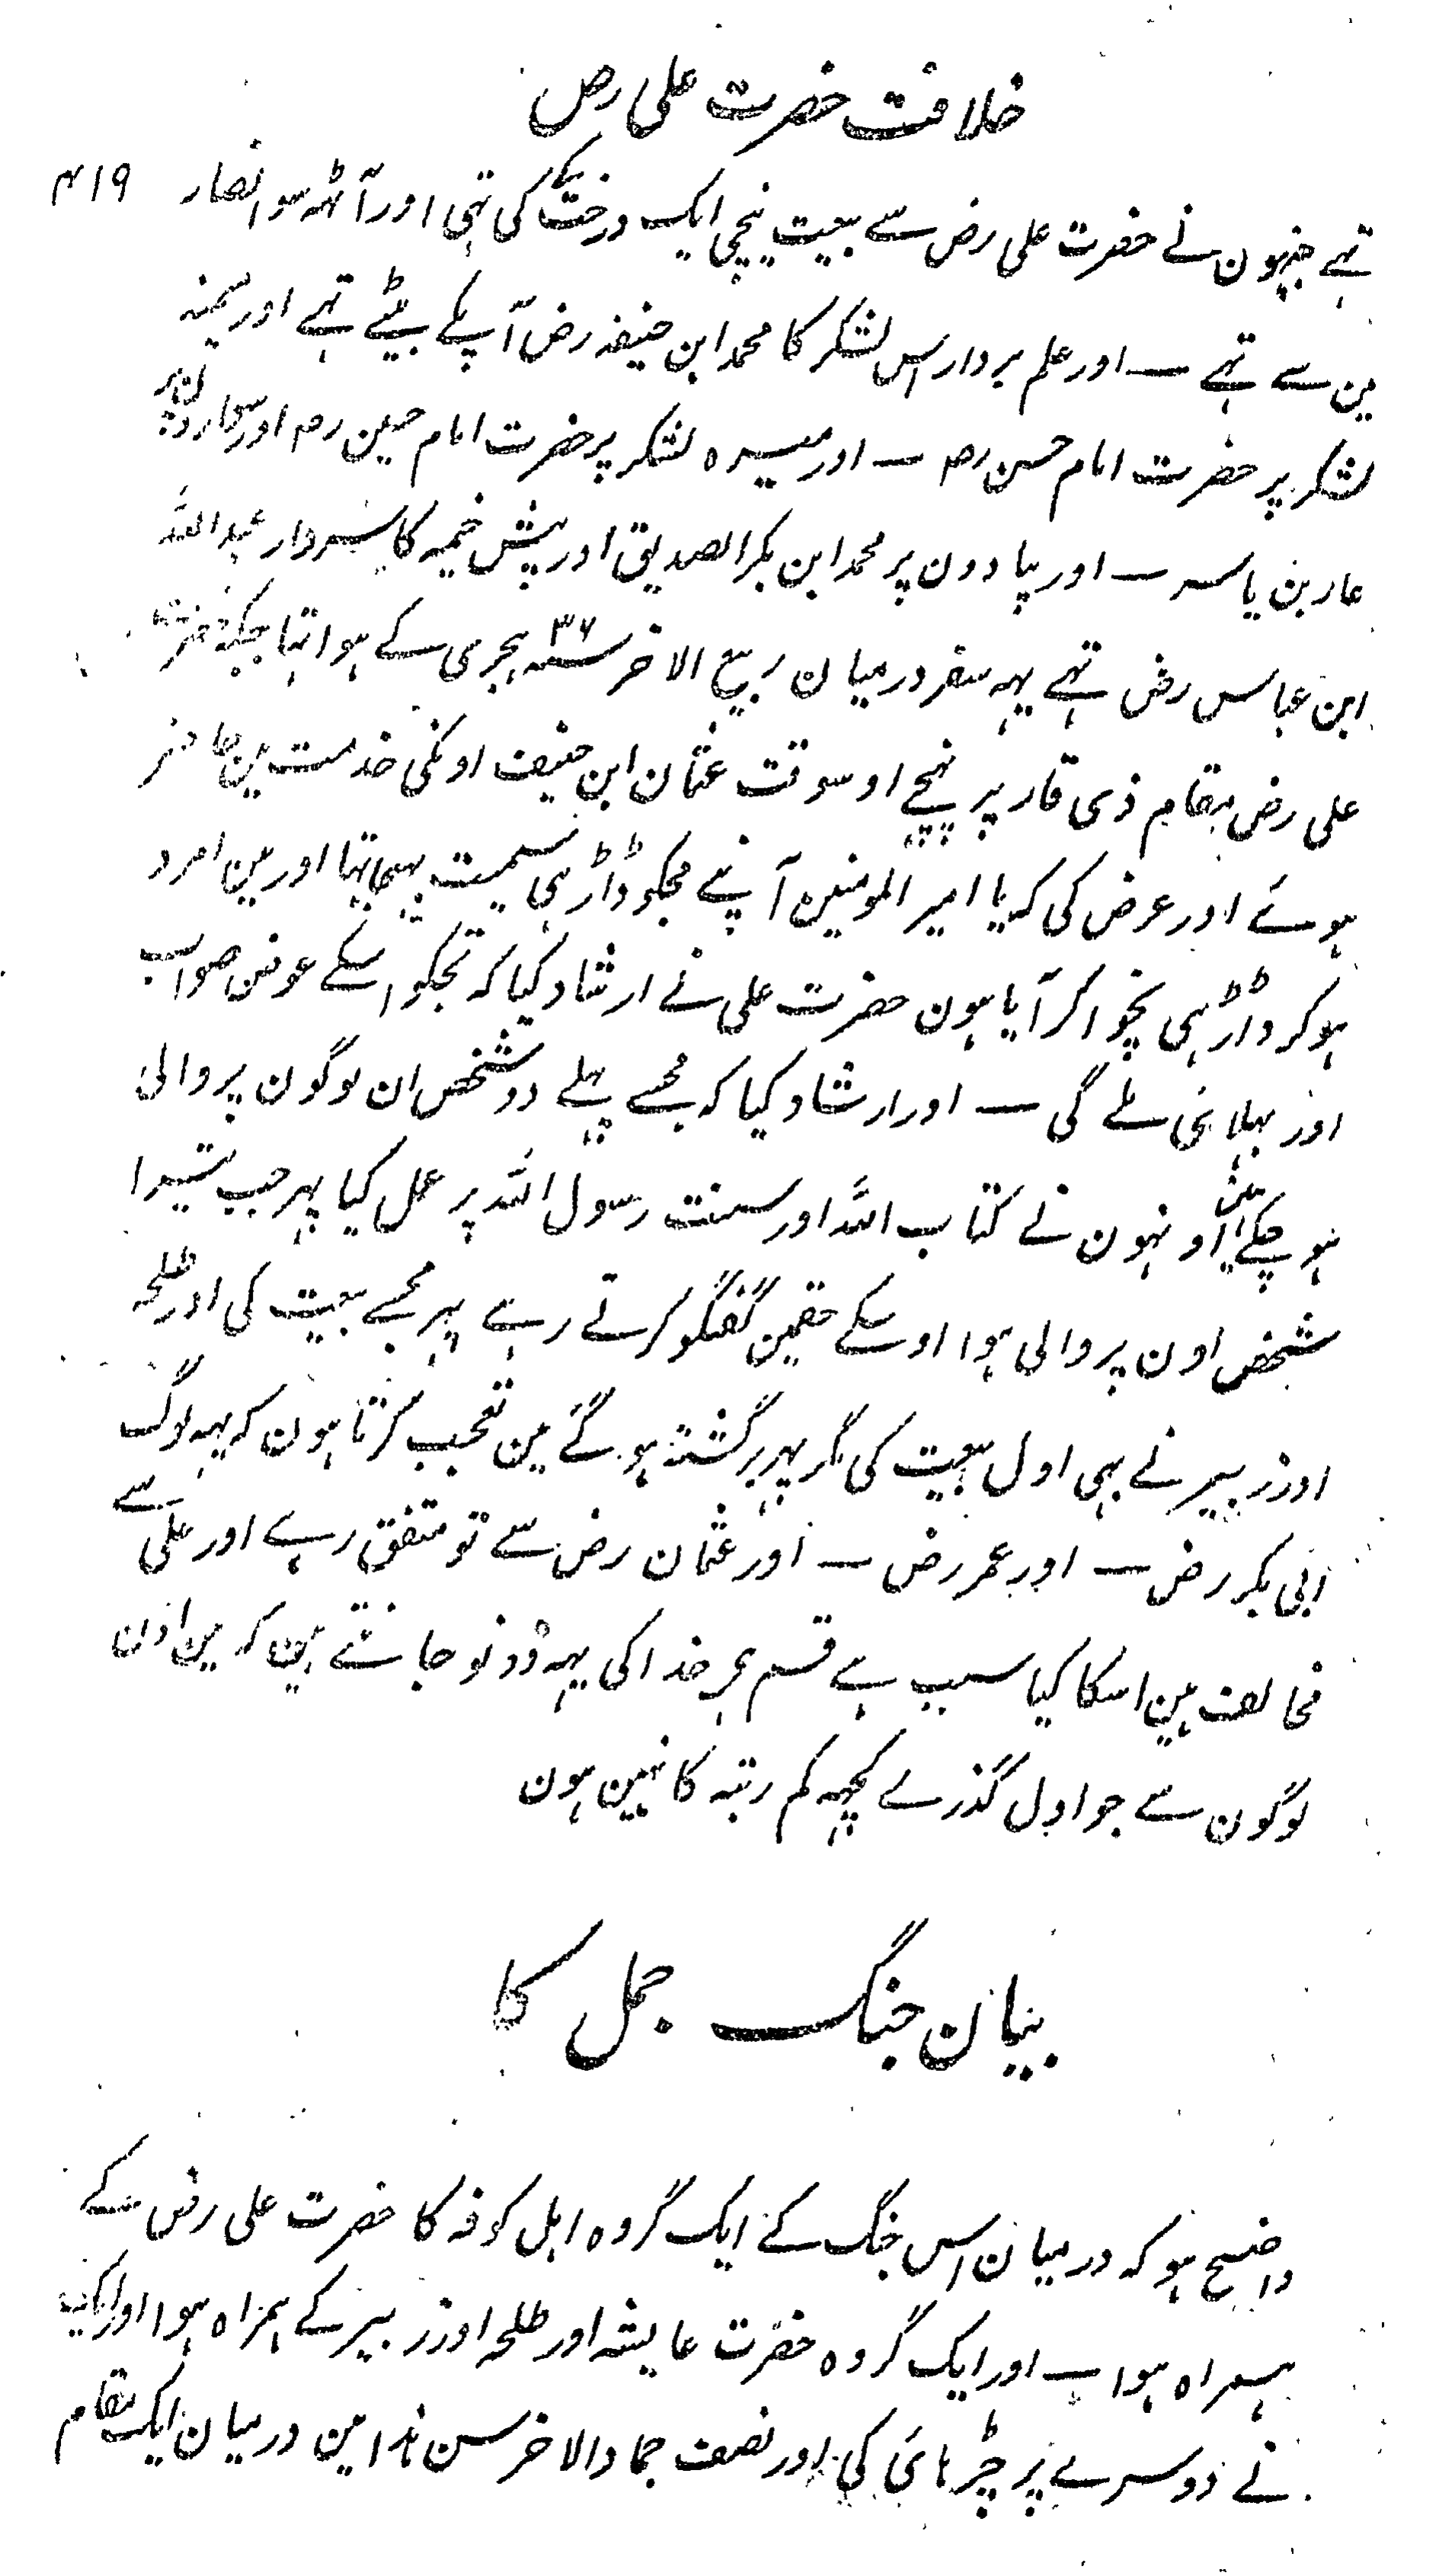 خلافت حضرت علی رض
۴۱۹
تہے جنہون نے حضرت علی رض سے بیعت نیچی ایک درخت کے کی تہی اور آٹہہ سو انصار
مین سے تہے — اور علم بردار اس لشکر کا محمد ابن حنیفہ رض آپکے بیٹے تہے اور یمنہ
لشکر پر حضرت امام حسن رض — اور میسرہ لشکر پر حضرت امام حسین رض اور سوارون پر
عمار بن یاسر — اور پیادون پر محمد ابن بکر الصدیق اور پیش خیمہ کا سردار عبد اللہ
ابن عباس رض تہے یہہ سفر درمیان ربیع الاخر ۳۶ سنہ ہجری کے ہوا تہا جبکہ حضرت
علی رض بمقام ذی قار پر پہنچے اوسوقت عثمان ابن حنیف اونکی خدمت مین حاضر
ہوئے اور عرض کی کہ یا امیر المومنین آپنے مجکو ڈاڑہی سمیت بہیجا تہا اور مین امرد
ہوکر داڑہی نچوا کر آیا ہون حضرت علی نے ارشاد کیا کہ تجکو اسکے عوض صواب
اور بہلائی ملے گی — اور ارشاد کیا کہ مجسے پہلے دو شخص ان لوگون پر والی
ہو چکے ہین اونہون نے کتاب اللہ اور سنت رسول اللہ پر عمل کیا پہر جب تیسرا
شخص اون پر والی ہوا اوسکے حقمین گفتگو کرتے رہے پہر مجسے بیعت کی اور طلحہ
اور زبیر نے بہی اول بیعت کی مگر پہر برگشتہ ہو گئے مین تعجب کرتا ہون کہ یہہ لوگ
ابی بکر رض — اور عمر رض — اور عثمان رض سے تو متفق رہے اور علی سے
مخالف ہین اسکا کیا سبب ہے قسم ہے خدا کی یہہ دونو جانتے ہین کہ مین اون
لوگون سے جو اول گذرے کچہہ کم رتبہ کا نہین ہون
بیان جنگ جمل کا
واضح ہو کہ درمیان اس جنگ کے ایک گروہ اہل کوفہ کا حضرت علی رض کے
ہمراہ ہوا — اور ایک گروہ حضرت عایشہ اور طلحہ اور زبیر کے ہمراہ ہوا اور ایک
نے دوسرے پر چڑہائی کی اور نصف جمادالاخر سن ہذا مین درمیان ایک مقام